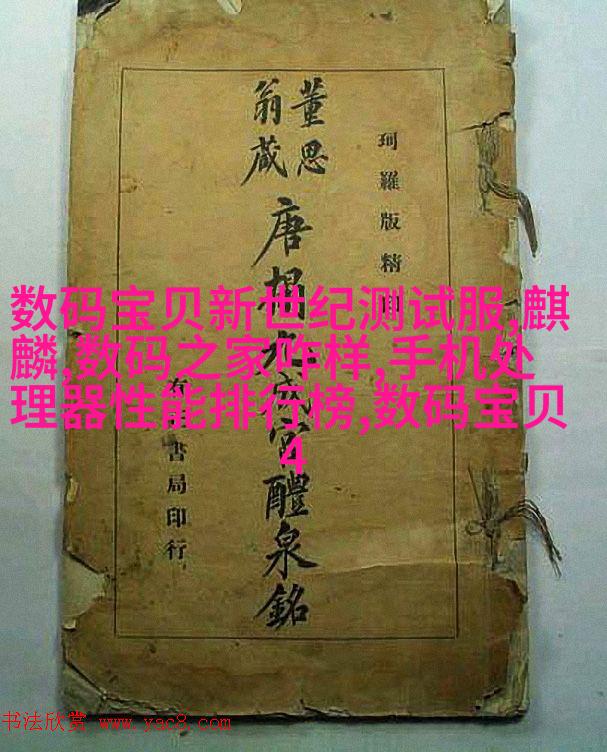 珂羅版精印
董思
翁藏
唐搨九成宮醴泉銘
有
書局印行
数码宝贝新世纪测试服,麒
麟,数码之家咋样,手机处
理器性能排行榜,数码宝贝
4
书法欣赏 www.yac8.com